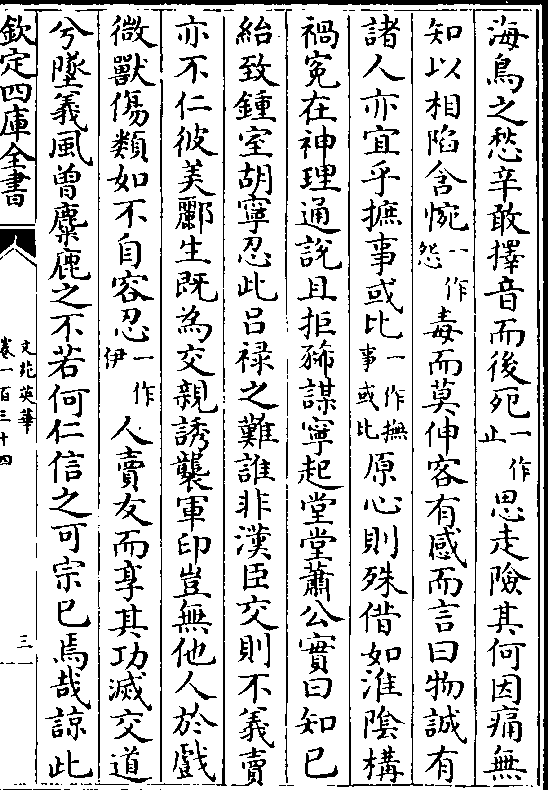 海鳥之愁辛敢擇音而後死一作止思走險其何因痛無
知以相陷含惋一作怨毒而莫伸客有感而言曰物誠有
諸人亦宜乎摭事或比一作撫事或比原心則殊借如淮陰構
禍寃在神理通說且拒豨謀寧起堂堂蕭公實曰知已
紿致鍾室胡寧忍此吕禄之難誰非漢臣交則不義賣
亦不仁彼美酈生既為交親誘襲軍印豈無他人於戲
微獸傷類如不自容忍一作伊人賣友而享其功滅交道
兮墜義風曽麋鹿之不若何仁信之可宗已焉哉諒此
欽定四庫全書
文苑英華
卷一百三十四
三